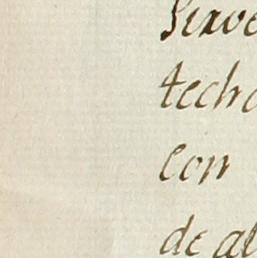 Sirve
techo
con
de al